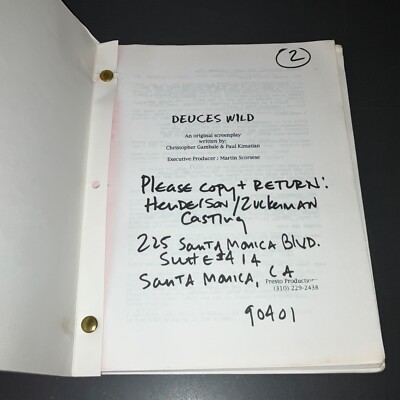 2
DEUCES WILD
An original screenplay
written by:
Christopher Gambale & Paul Kimatian
Executive Producer : Martin Scorsese
PLEASE COPY + RETURN:
HENDERSON/ZUCKERMAN
CASTING
225 SANTA MONICA BLVD.
SUITE #414
SANTA MONICA, CA
Presto Production
(310) 229-2438
90401